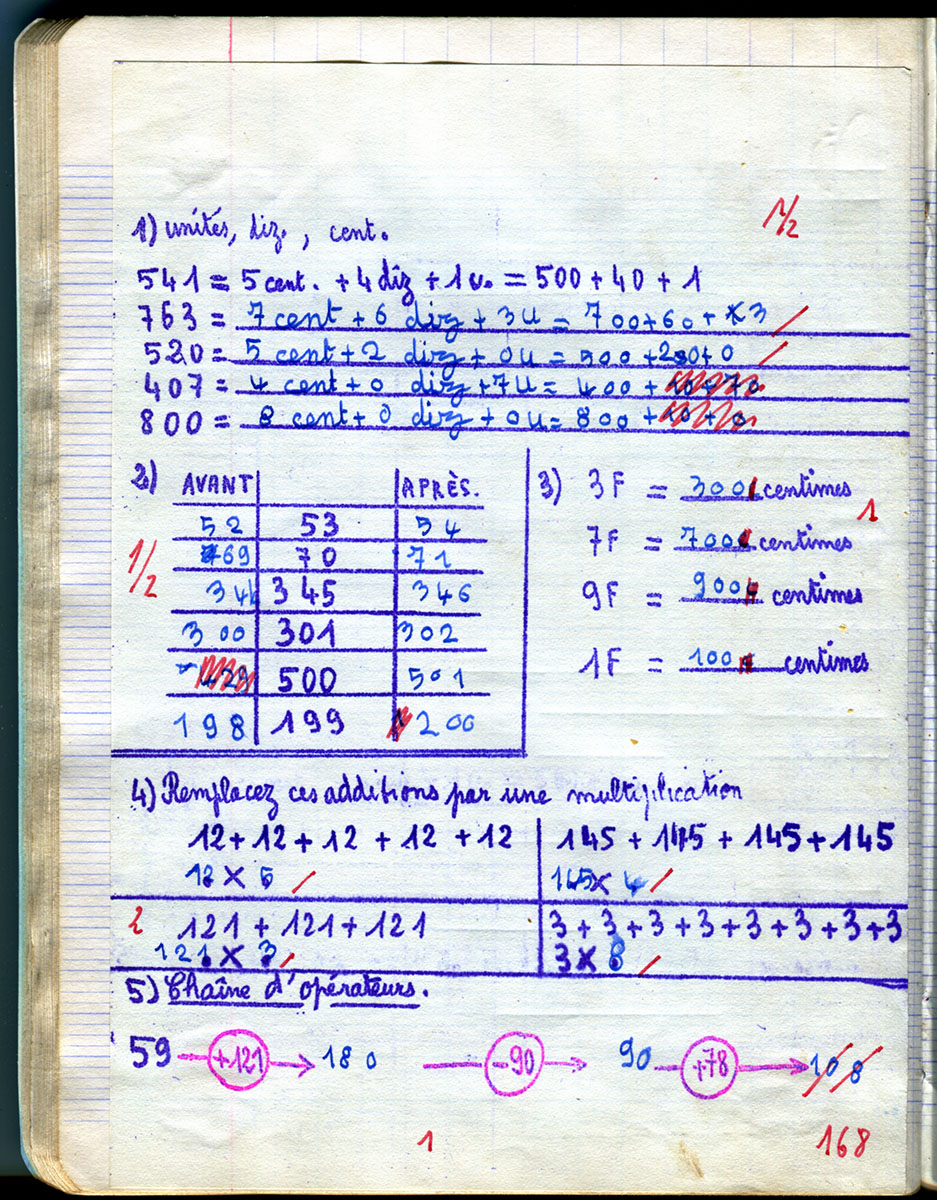 1/2
1) unités, diz., cent.
541 = 5 cent. + 4 diz + 1 u. = 500 + 40 + 1
763 = 7 cent + 6 diz + 3 u = 700 + 60 + 3
520 = 5 cent + 2 diz + 0 u = 500 + 20 + 0
407 = 4 cent + 0 diz + 7 u = 400 +
800 = 8 cent + 0 diz + 0 u = 800 +
2) AVANT APRÈS.
52 53 54
69 70 71
344 345 346
1/2
300 301 302
500 501
198 199 200
3) 3F = 300 centimes
1
7F = 700 centimes
9F = 900 centimes
1F = 100 centimes
4) Remplacez ces additions par une multiplication
12 + 12 + 12 + 12 + 12
12 × 5
145 + 145 + 145 + 145
× 4
2 121 + 121 + 121
121 × 3
3 + 3 + 3 + 3 + 3 + 3 + 3 + 3
3 × 8
5) Chaîne d'opérateurs.
59 +121 180 -90 90 +78 108
1 168